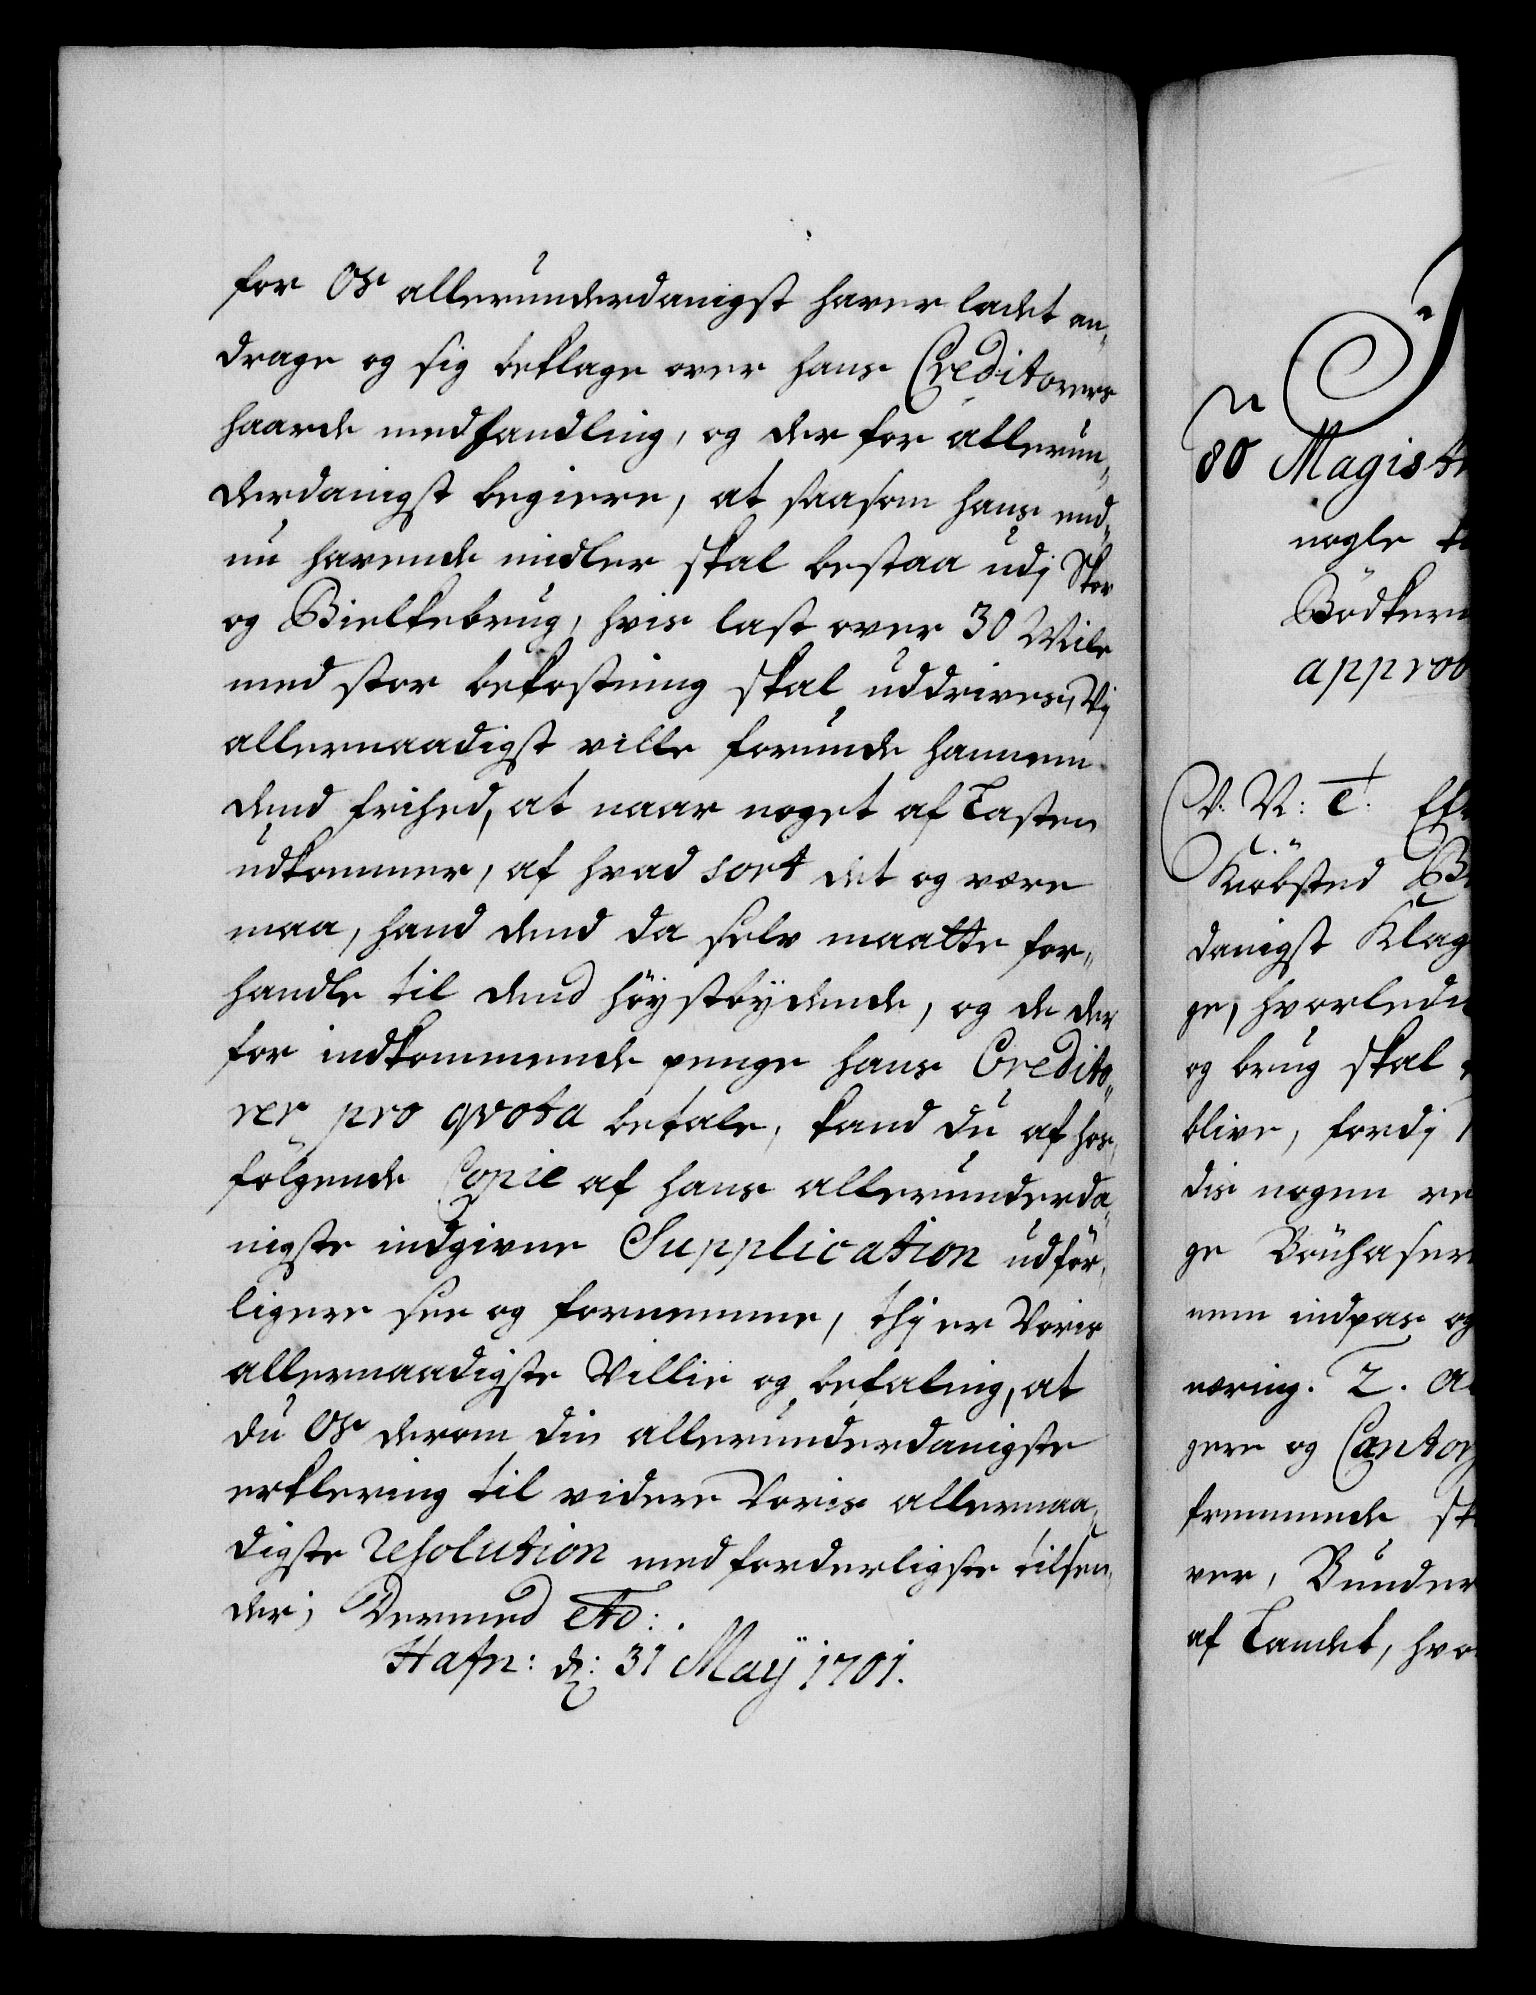 for Os allerunderdanigst haver ladet an„
drage og sig beklage over hans Creditorers
haarde medhandling, og der for allerun„
derdanigst begiere, at saasom hans end„
nu havende midler skal bestaa udj Skov
og Bielkebrug, hvis last over 30 Miile
med stor bekostning skal uddrives, Vj
allernaadigst ville forunde hannem
dend frihed, at naar noget af Lasten
udkommer, af hvad sort det og være
maa, hand dend da selv maatte for„
handle til dend höystbydende, og de der
for indkommende penge hans Credito„
rer pro qvota betale, kand du af hos„
fölgende Copie af hans allerunderda„
nigste indgivne Supplication udför„
ligere see og fornemme, thj er Voris
allernaadigste Villie og befaling, at
du Os derom din allerunderdanigste
erklering til videre Voris allernaa„
digste resolution med forderligste tilsen„
der, Dermed etc:.
Hafn: d: 31 Maij 1701.
80 Magist
nogle
Bödker
approb
V. V: C. Eft
Kiöbsted
danigst Klag
ge, hvorled
og brug skal
blive, fordj
dis nogen
ge Bönhaser
nem indpas og
næring. 2.
gere og Cantor
fremmede
ver, Bunder
af Landet, hvo